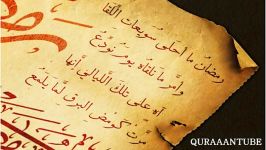 رمضانُ ما أحلى سويعات اللقا
وأمرَّ ما تلقاه يومَ تُودّعُ
آه على تلك الليالي إنها
مرّت كومض البرق لمّا يلمعُ
QURAAANTUBE